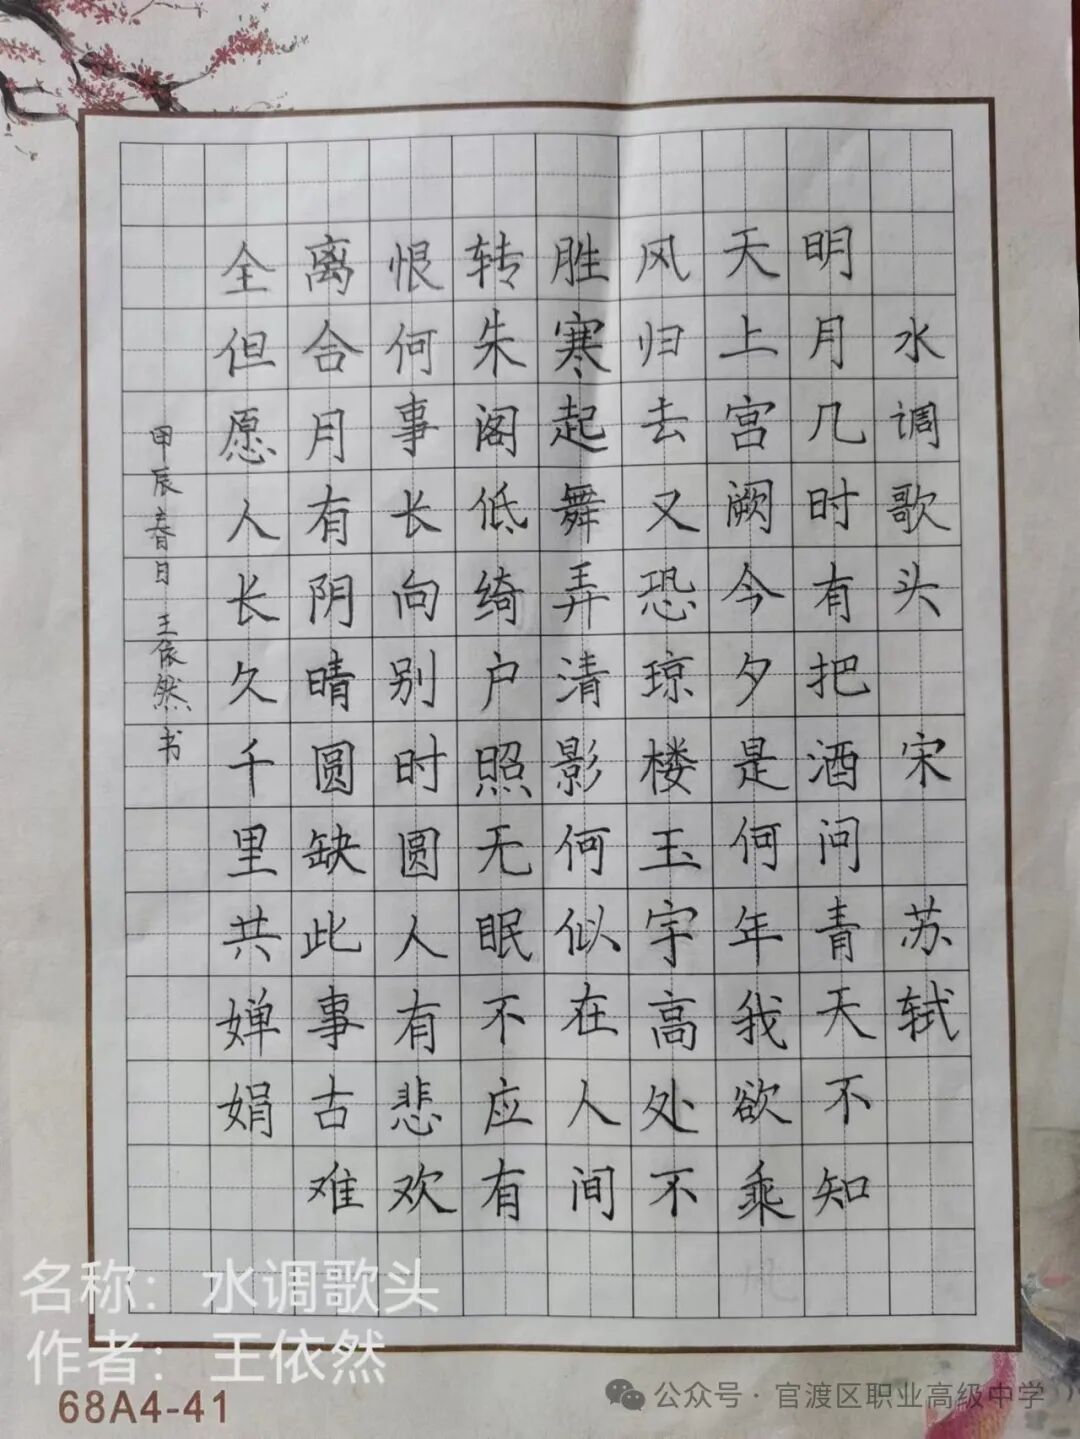 水调歌头 宋 苏轼
明月几时有把酒问青天不知
天上宫阙今夕是何年我欲乘
风归去又恐琼楼玉宇高处不
胜寒起舞弄清影何似在人间
转朱阁低绮户照无眠不应有
恨何事长向别时圆人有悲欢
离合月有阴晴圆缺此事古难
全但愿人长久千里共婵娟
甲辰春日王依然书
名称：水调歌头
作者：王依然
68A4-41
公众号·官渡区职业高级中学